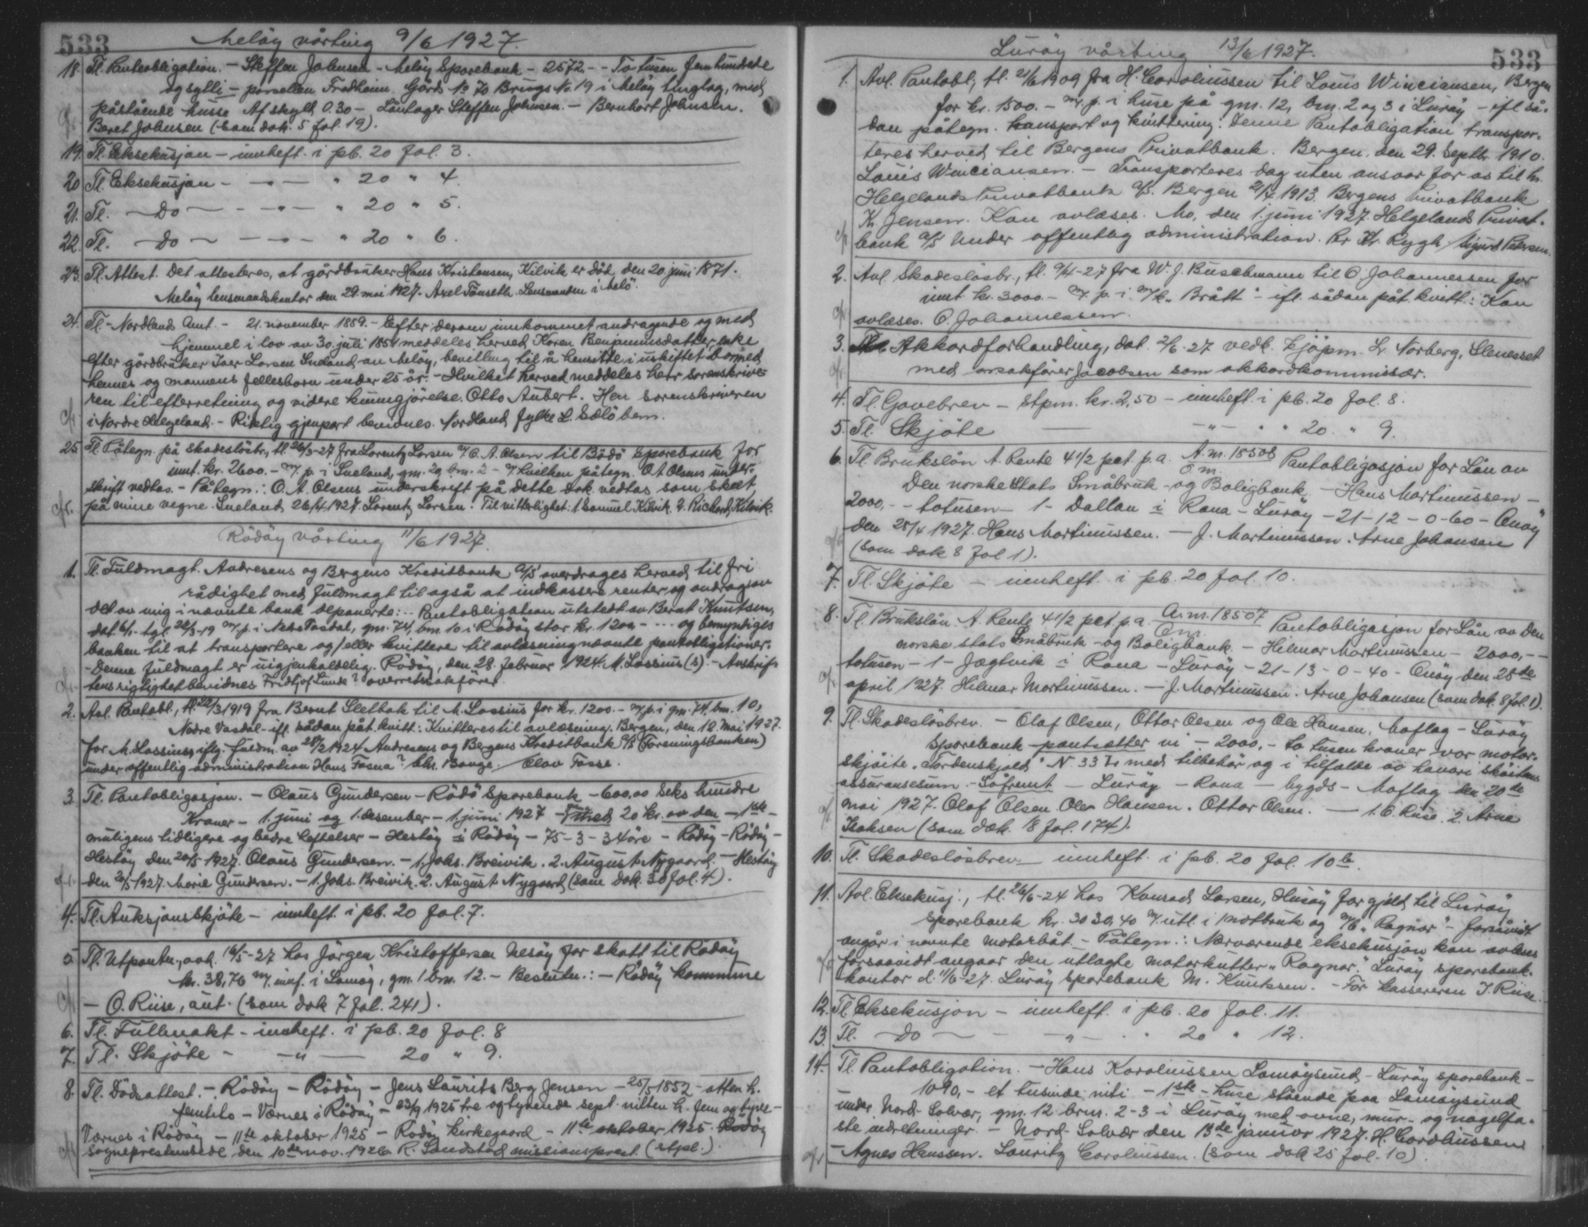 533 Meløy vårting 9/6 1927.
18. Tl. Panteobligation. - Steffen Johnsen - Meløy Sparebank - 2572 - - To tusen femhundrede
og sytti - parsellen Fredheim. Gårds No 70 Brugs No 19 i Meløy tinglag, med
påstående husse Af skyld 0.30 - Låntager Steffen Johnsen. - Bernhart Johnsen.
Beret Johnsen (Som dok. 5 fol 19).
19. Tl. Eksekusjon - innheft. i pb. 20 fol. 3.
20. Tl Eksekusjon - - " - " 20 " 4.
21. Tl. - Do - - " - " 20 " 5.
22. Tl. - Do - - " - " 20 " 6.
23. Tl. Attest. Det attesteres, at gårdbruker Hans Kristensen, Kilvik er død den 20 juni 1871.
Meløy lensmandskontor den 29 mai 1927. Axel Tønseth Lensmanden i Melø.
24. Tl. - Nordlands Amt. - 21. november 1859. - Efter derom innkommet andragende og med
hjemmel i lov av 30. juli 1851 meddeles herved Karen Benjaminsdatter, enke
efter gårdbruker Iver Larsen Sneland av Meløy, bevilling til å hensitte i uskiftet bo med
hennes og mannens fellesbarn under 25 år. - Hvilket herved meddeles herr sorenskrive-
ren til efterretning og videre kunngjørelse. Otto Aubert. Herr sorenskriveren
i Nordre Helgeland. - Riktig gjenpart bevidnes. Nordland fylke L. Sæløbem.
25. Tl Påtegn. på skadesløsbr., tl. 26/3-27 fra Lorentz Larsen O. A. Olsen til Bodø Sparebank for
innt. kr. 2600. - m/ p. i Sneland, gm. 29 brn. 2 - hvilken påtegn. O. A. Olsens under-
skrift vedtas. - Påtegn.: O. A. Olsens underskrift på dette dok vedtas som skeet
på mine vegne. Sneland 26/4 1927. Lorentz Larsen. Til vitterlighet: 1 Samuel Kilvik. 2. Richard Kilvik.
Rødøy vårting 11/6 1927.
1. Tl. Fuldmagt. Andresens og Bergens Kreditbank A/S overdrages herved til fri
rådighet med fuldmagt til også at indkassere renter og avdrag av
det av mig i nævnte bank deponerte: .. Pantobligation utstedt av Berat Knutsen,
dat 6/1 - tgl 22/3-19 m/ p. i Nets Vaadal, gm. 74, brn 10 i Rødøy stor kr. 1200 - ... og bemyndiges
banken til at transportere og/eller kvittere til avlæsning nævnte pantobligationer.
- Denne fuldmagt er uigjenkaldelig. Rødøy, den 28. februar 1924. M. Lossius (s). - Avskrif-
tens rigtighet bevidnes Fridtjof Lunde ? overretssakfører
2. Avl. Pantobl., tl. 22/3 1919 fra Berat Sletbak til M. Lossius for kr. 1200. - m/ p. i gm. 74, brn. 10,
Nedre Vasdal - ifl. sådan påt. kvitt: Kvitteres til avløsning. Bergen, den 12 mai 1927.
for M. Lossius iflg. fuldm. av 28/2 1924 Andresens og Bergens Kreditbank A/S (Foreningsbanken)
under offentlig administration Hans Fasua? Chr. Bange. Olav Fosse.
3. Tl. Pantobligasjon. - Olaus Gundersen - Rødø Sparebank - 600,00 Seks hundre
Kroner - 1. juni og 1. desember - 1. juni 1927 - Tilhed 20 kr. av den - 1ste -
matigens lidligere og bedre heftelser - Hestøy i Rødøy - 75 - 3 - 34 øre - Rødøy - Rødøy -
Hestøy den 20/5 1927. Olaus Gundersen. - 1. Johs. Breivik. 2. August Nygaard. - Hestøy
den 20/5 1927. Marie Gundersen. - 1. Johs Breivik. 2. August Nygaard (som dok. 30 fol. 4).
4. Tl. Auksjonsskjøte - innheft i pb. 20 fol. 7.
5. Tl. Utpantn., avh. 16/5-27 hos Jørgen Kristoffersen Nesøy for skatt til Rødøy
kr. 38,70 m/ innf. i Lomøy, gm. 1 brn. 12. - Beslutn.: - Rødøy kommune
- O. Riise, aut. (som dok 7 fol. 241).
6. Tl. Fullmakt - innheft. i pb. 20 fol. 8
7. Tl. Skjøte - - " - 20 " 9.
8. Tl. Dødsattest. - Rødøy - Rødøy - Jens Laurits Berg Jensen - 25/5 1852 - atten h.
femtito - Værnes i Rødøy - 23/9 1925 tre og tyvende sept. nitten h. fem og tyve -
Værnes i Rødøy - 11te oktober 1925 - Rødøy kirkegaard - 11te oktober 1925 - Rødøy
sogneprestembede, den 10de nov. 1926 R. Sandstad, missionsprest. (stpl.)
533 Lurøy vårting 13/6 1927.
1. Avl. Pantobl., tl. 21/6 1909 fra H. Caroliussen til Louis Winciansen, Bergen
for kr. 1500. - m/ p. i huse på gm. 12, brn. 2 og 3 i Lurøy - ifl. så-
dan påtegn. transport og kvittering: Denne Pantobligation transpor-
teres herved til Bergens Privatbank. Bergen, den 29. Septb. 1910.
Louis Winciansen. - Transporteres dag uten ansvar for os til h.
Helgelands Privatbank A/S. Bergen 21/7 1913. Bergens Privatbank
Kr. Jensen. Kan avlæses. Mo, den 1 juni 1927. Helgelands Privat-
bank A/S Under offentlig administration. Per Kr. Rygh Sigurd Petersen.
2. Avl. Skadesløsbr., tl. 9/4-27 fra W. J. Buschmann til O. Johannessen for
innt kr. 3000. - m/ p. i m/k. "Brått" - ifl. sådan påt kvitt.: Kan
avlæses. O. Johannessen.
3. Akkordforhandling, dat. 2/6-27 vedk. kjøpm. L. Norberg, Slenesset
med orsakfører Jacobsen som akkordkommissær.
4. Tl. Gavebrev - Stpm. kr. 2,50 - innheft i pb. 20 fol. 8.
5. Tl. Skjøte - - " - " " 20 " 9.
6. Tl Brukslån A. Rente 4 1/2 pct p. a. A. m. 18508 / O. m. Pantobligasjon for Lån av
Den norske Stats Småbruk- og Boligbank - Hans Martinussen -
2000, - - totusen - 1 - Dalton i Rana - Lurøy - 21 - 12 - 0 - 60 - Onøy
den 28/4 1927. Hans Martinussen. - J. Martinussen. Arne Johansen
(Som dok 8 fol 1).
7. Tl. Skjøte - innheft. i pb. 20 fol. 10.
8. Tl Brukslån A. Rente 4 1/2 pct p a A. m. 18507 / O. m. Pantobligasjon for Lån av Den
norske stats Småbruk- og Boligbank. - Hilmar Martinussen - 2000, - -
totusen - 1 - Jægtvik i Rana - Lurøy - 21 - 13 - 0 - 40 - Onøy den 28de
april 1927. Hilmar Martinussen. - J. Martinussen. Arne Johansen (som dok. 8 fol. 1).
9. Tl. Skadesløsbrev. - Olaf Olsen, Ottar Olsen og Ole Hansen, Moflag - Lurøy
Sparebank - pantsætter vi - 2000, - to tusen kroner vor motor-
skøite "Tordenskjold" N 33 L. med tilbehør og i tilfælde av havari skøitens
assuransesum. Såfremt - Lurøy - Rana - bygds - Moflag den 20de
mai 1927. Olaf Olsen Ole Hansen. Ottar Olsen. - 1. O. Riise. 2. Arne
Isaksen (som dok. 18 fol. 174).
10. Tl. Skadesløsbrev - innheft. i pb. 20 fol. 10 b.
11. Avl. Eksekusj., tl. 26/6-24 hos Konrad Larsen, Husøy for gjeld til Lurøy
Sparebank kr. 3030,40 m/ utl. i motbruk og m/k. "Ragnar" - forsåvidt
angår i nevnte motorbåt. - Påtegn.: Nærværende eksekusjon kan avleses
forsaavidt angaar den utlagte motorkutter "Ragnar". Lurøy sparebank-
kontor d. 11/6-27. Lurøy sparebank M. Knutssen. - For kassereren J. Riise.
12. Tl. Eksekusjon - innheft. i pb. 20 fol. 11.
13. Tl. - Do - - " - " 20 " 12.
14. Tl. Pantobligation. - Hans Karoliussen Lamøysund - Lurøy sparebank -
1090, - et tusinde niti - 1ste - huse stående paa Lamøysund
under Nord-Solvær, gm. 12 brn. 2-3 i Lurøy med ovne, mur- og nagelfa-
ste indretninger. - Nord-Solvær den 13de januar 1927. H. Caroliussen
- Agnes Hanssen. Lauritz Caroliussen. (Som dok 25 fol. 10).